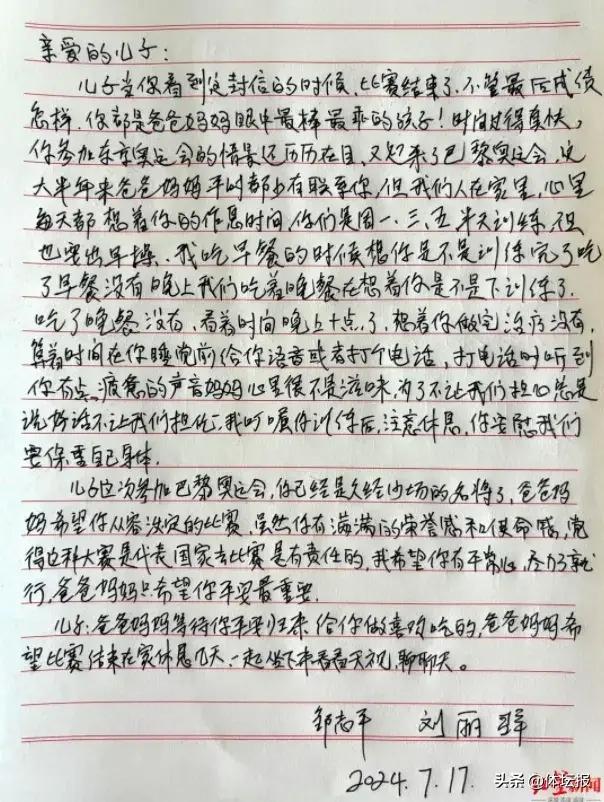 亲爱的儿子:
儿子当你看到这封信的时候,比赛结束了,不管最后成绩
怎样,你都是爸爸妈妈眼中最棒最乖的孩子!时间过得真快,
你参加东京奥运会的情景还历历在目,又迎来了巴黎奥运会,这
大半年来爸爸妈妈平时都少有联系你,但我们人在家里,心里
每天都想着你的作息时间,你们是周一、三、五半天训练,但
也要出早操、我吃早餐的时候想你是不是训练完了吃
了早餐没有晚上我们吃着晚餐在想着你是不是下训练了,
吃了晚餐没有,看着时间晚上十点了,想着你做完治疗没有,
算着时间在你睡觉前给你语音或者打个电话,打电话时听到
你有点疲惫的声音妈妈心里很不是滋味,为了不让我们担心总是
说好话不让我们担忧,我叮嘱你训练后,注意休息,你安慰我们
要保重自己身体.
儿子这次参加巴黎奥运会,你已经是久经沙场的名将了,爸爸妈
妈希望你从容淡定的比赛,虽然你有满满的荣誉感和使命感,觉
得这种大赛是代表国家去比赛是有责任的,我希望你有平常心,尽力了就
行,爸爸妈妈只希望你平安最重要.
儿子:爸爸妈妈等待你平安归来给你做喜欢吃的,爸爸妈妈希
望比赛结束在家休息几天,一起坐下来看看电视,聊聊天。
邹志平 刘丽群
2024.7.17.
头条@体坛报